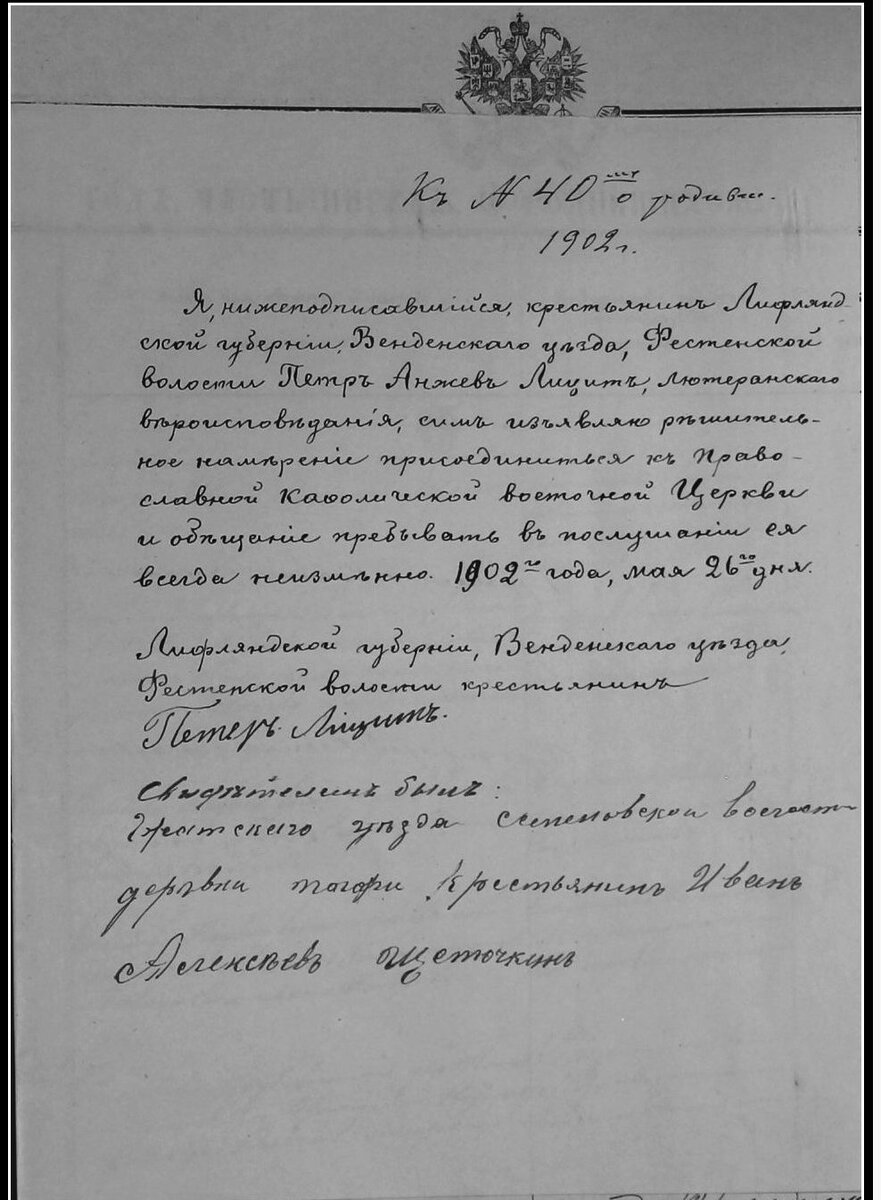 Къ № 40 о родивш.
1902 г.
Я, нижеподписавшійся, крестьянинъ Лифлянд
ской губерніи, Венденскаго уѣзда, Фестенской
волости Петръ Анжевъ Лицитъ, лютеранскаго
вѣроисповѣданія, симъ изъявляю рѣшитель-
ное намѣреніе присоединиться къ Право-
славной Каѳолической восточной Церкви
и обѣщаніе пребывать въ послушаніи ея
всегда неизмѣнно. 1902го года, мая 26го дня.
Лифляндской губерніи, Венденскаго уѣзда,
Фестенской волости крестьянинъ
Петеръ Лицитъ.
Свидѣтелемъ былъ:
Гжатскаго уѣзда волост
деръвни крестьянинъ Иванъ
Алексѣевъ Щеточкинъ